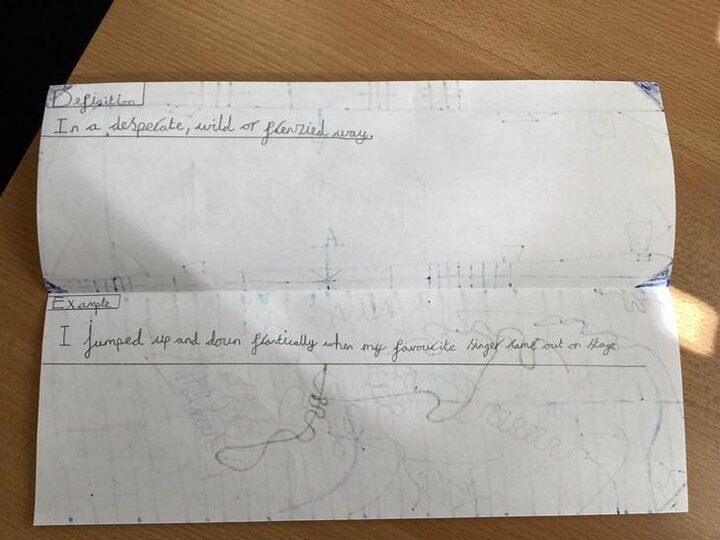 Definition
In a desperate, wild or frenzied way.
Example
I jumped up and down frantically when my favourite singer came out on stage